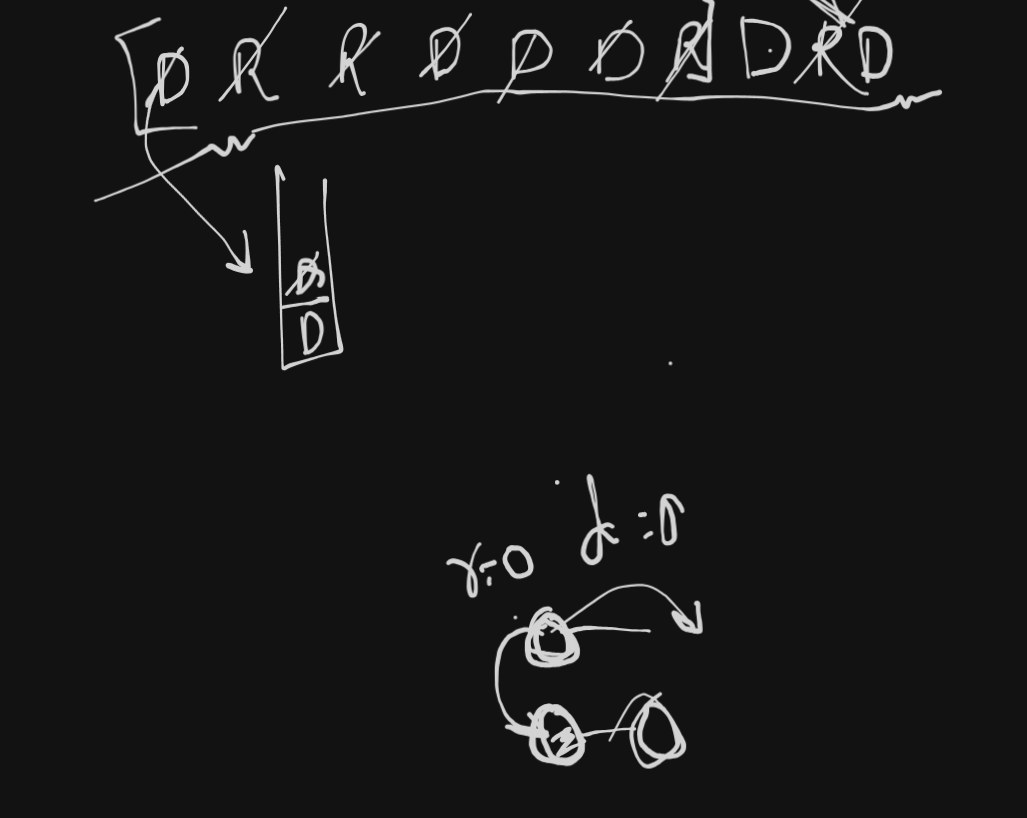 [D R R D D D R] D R D
D
D
r=0 d=0